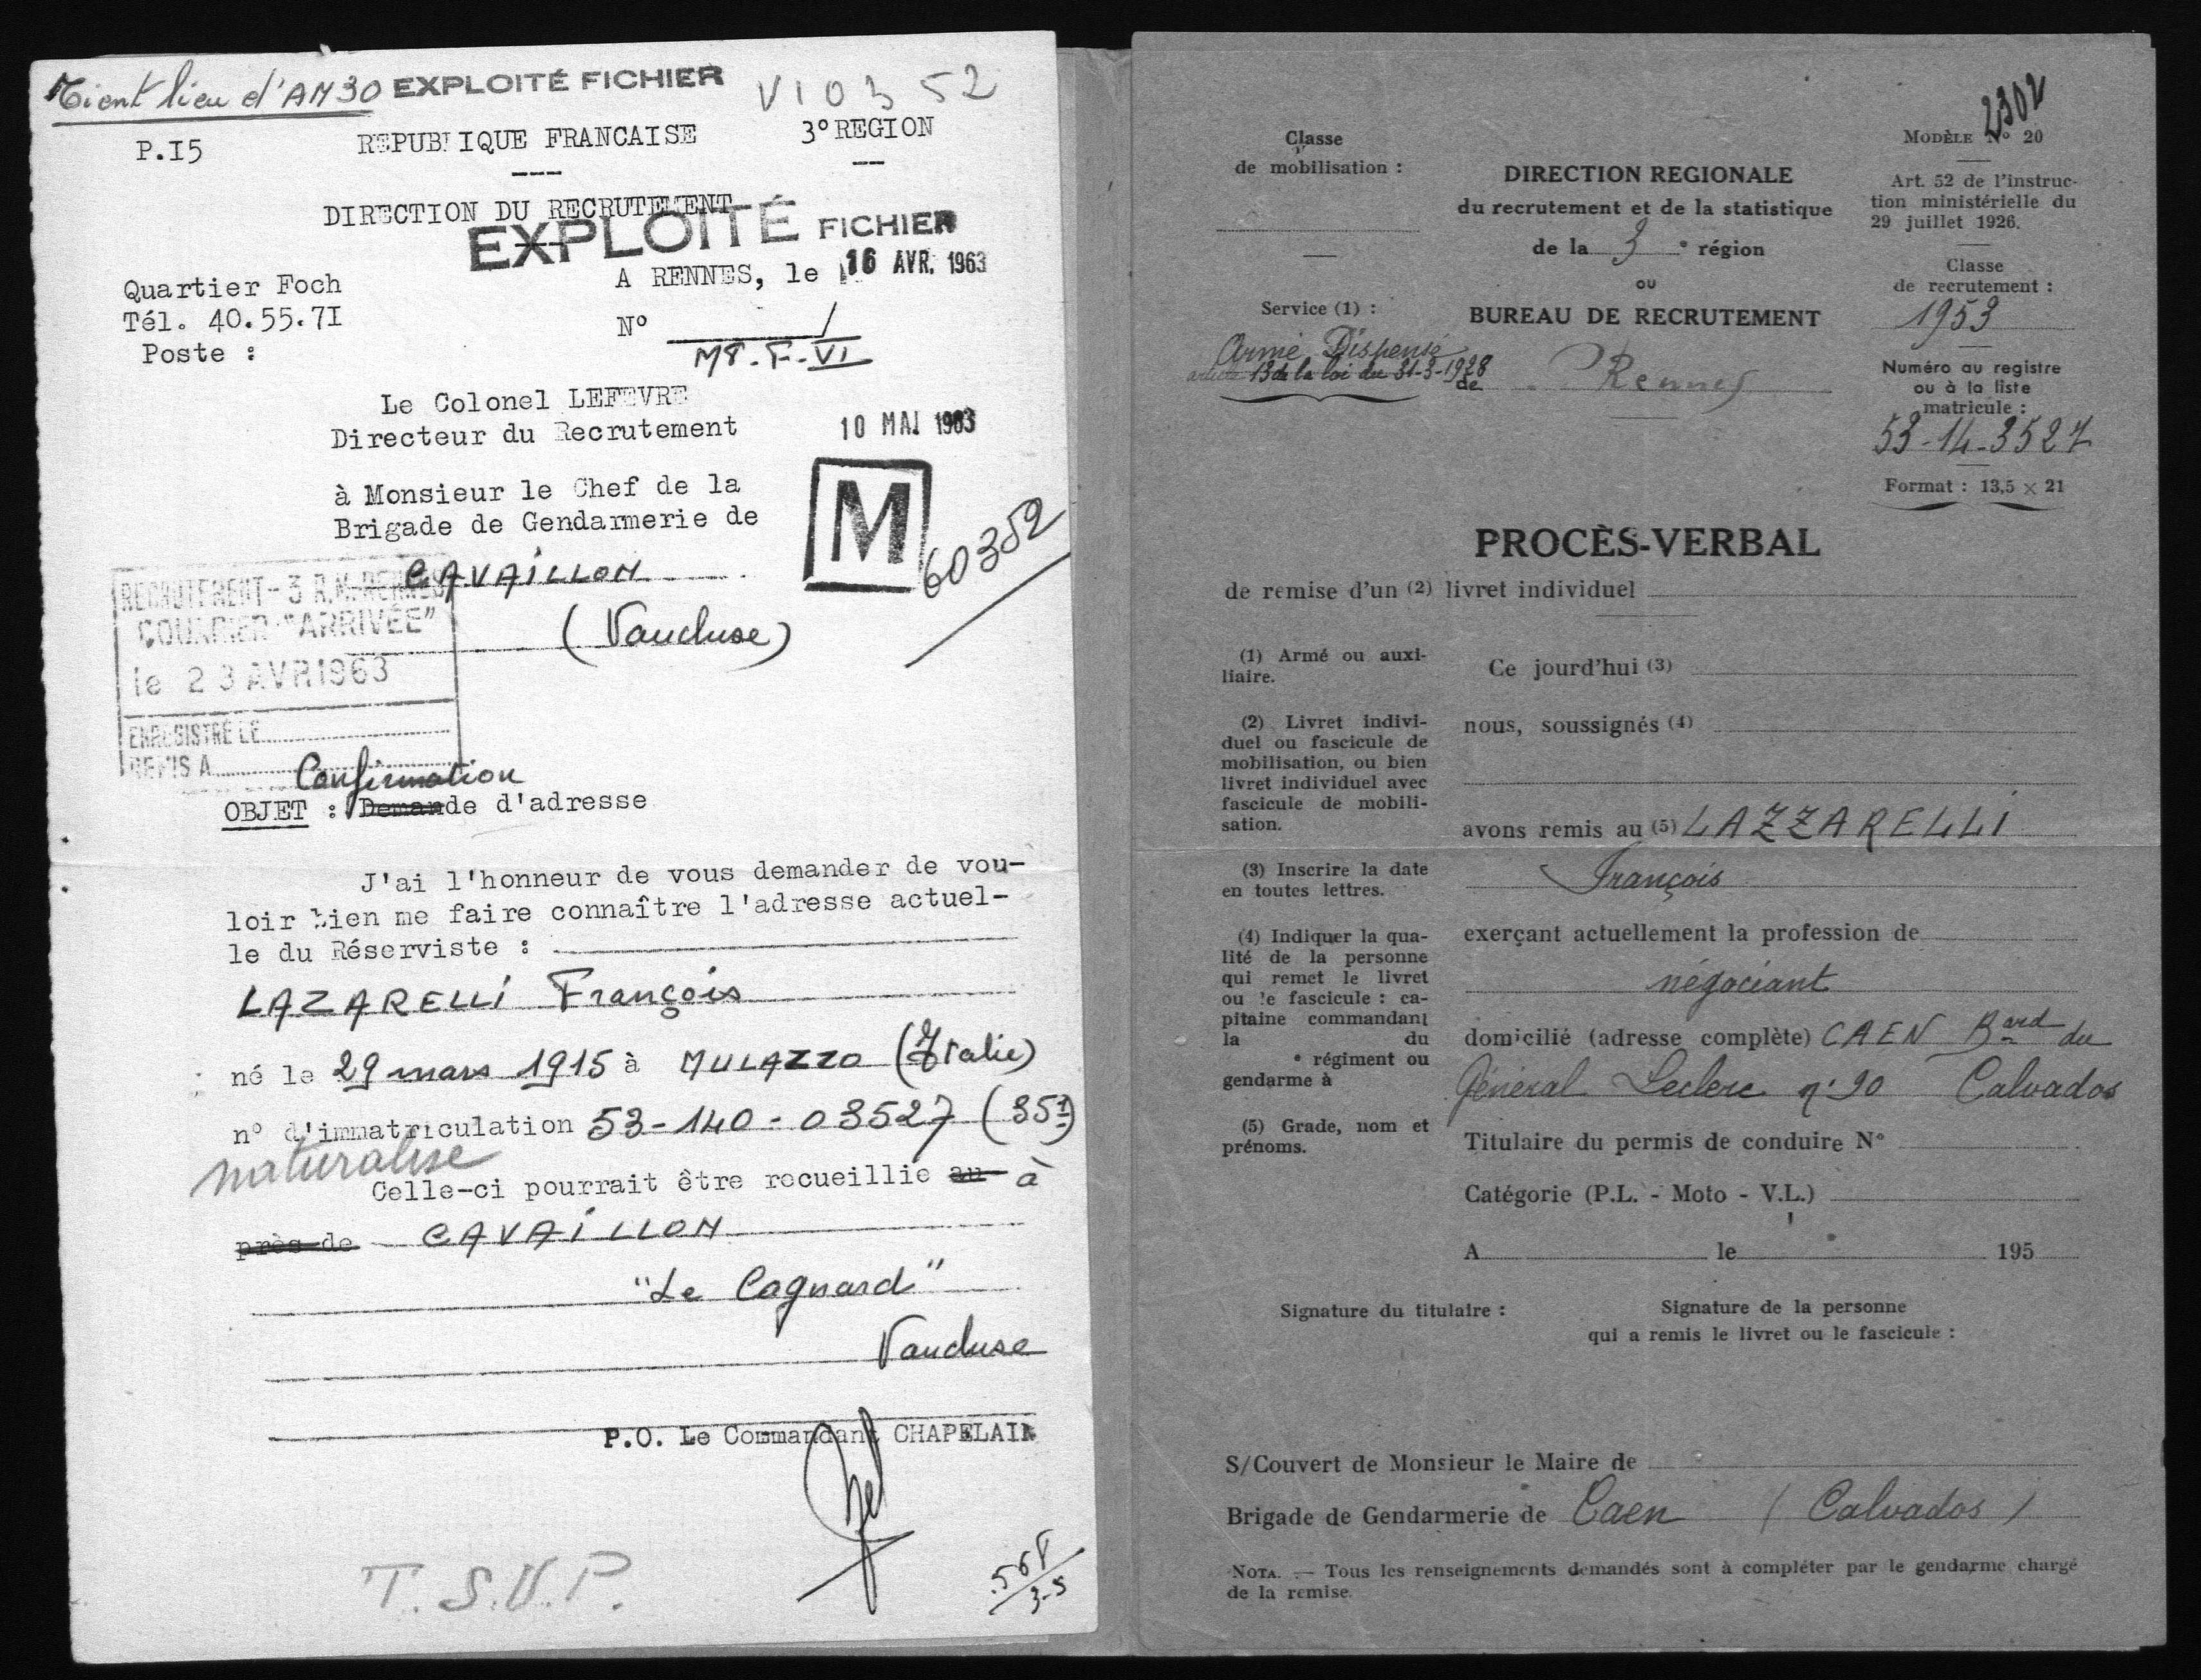 Tient lieu d'AM30 EXPLOITÉ FICHIER V103 52
P.I5 REPUBLIQUE FRANCAISE 3° REGION
DIRECTION DU RECRUTEMENT
EXPLOITÉ FICHIER
Quartier Foch A RENNES, le 16 AVR. 1963
Tél. 40.55.7I N° /
Poste : M8.F-VI
Le Colonel LEFEVRE
Directeur du Recrutement 10 MAI 1963
à Monsieur le Chef de la
Brigade de Gendarmerie de M
CAVAILLON 60352
(Vaucluse)
RECRUTEMENT - 3 R.M. RENNES
COURRIER "ARRIVÉE"
le 23 AVR 1963
ENREGISTRÉ LE
REMIS A
Confirmation
OBJET : Demande d'adresse
J'ai l'honneur de vous demander de vou-
loir bien me faire connaître l'adresse actuel-
le du Réserviste :
LAZARELLI François
né le 29 mars 1915 à MULAZZO (Italie)
n° d'immatriculation 53-140-03527 (35 1)
naturalise
Celle-ci pourrait être recueillie au à
près de CAVAILLON
"Le Cagnard"
Vaucluse
P.O. Le Commandant CHAPELAIN
T.S.V.P.
568
3-5
2302
Classe
de mobilisation :
Service (1) :
Armé Dispensé
article 13 de la loi du 31-3-1928
DIRECTION REGIONALE
du recrutement et de la statistique
de la 3 e région
ou
BUREAU DE RECRUTEMENT
de Rennes
MODÈLE N° 20
Art. 52 de l'instruc-
tion ministérielle du
29 juillet 1926.
Classe
de recrutement :
1953
Numéro au registre
ou à la liste
matricule :
53-14-3527
Format : 13,5 × 21
PROCÈS-VERBAL
de remise d'un (2) livret individuel
(1) Armé ou auxi-
liaire.
(2) Livret indivi-
duel ou fascicule de
mobilisation, ou bien
livret individuel avec
fascicule de mobili-
sation.
(3) Inscrire la date
en toutes lettres.
(4) Indiquer la qua-
lité de la personne
qui remet le livret
ou le fascicule : ca-
pitaine commandant
la du
e régiment ou
gendarme à
(5) Grade, nom et
prénoms.
Ce jourd'hui (3)
nous, soussignés (4)
avons remis au (5) LAZZARELLI
François
exerçant actuellement la profession de
négociant
domicilié (adresse complète) CAEN Bard du
Général Leclerc n° 90 Calvados
Titulaire du permis de conduire N°
Catégorie (P.L. - Moto - V.L.)
A le 195
Signature du titulaire : Signature de la personne
qui a remis le livret ou le fascicule :
S/Couvert de Monsieur le Maire de
Brigade de Gendarmerie de Caen (Calvados)
NOTA. — Tous les renseignements demandés sont à compléter par le gendarme chargé
de la remise.